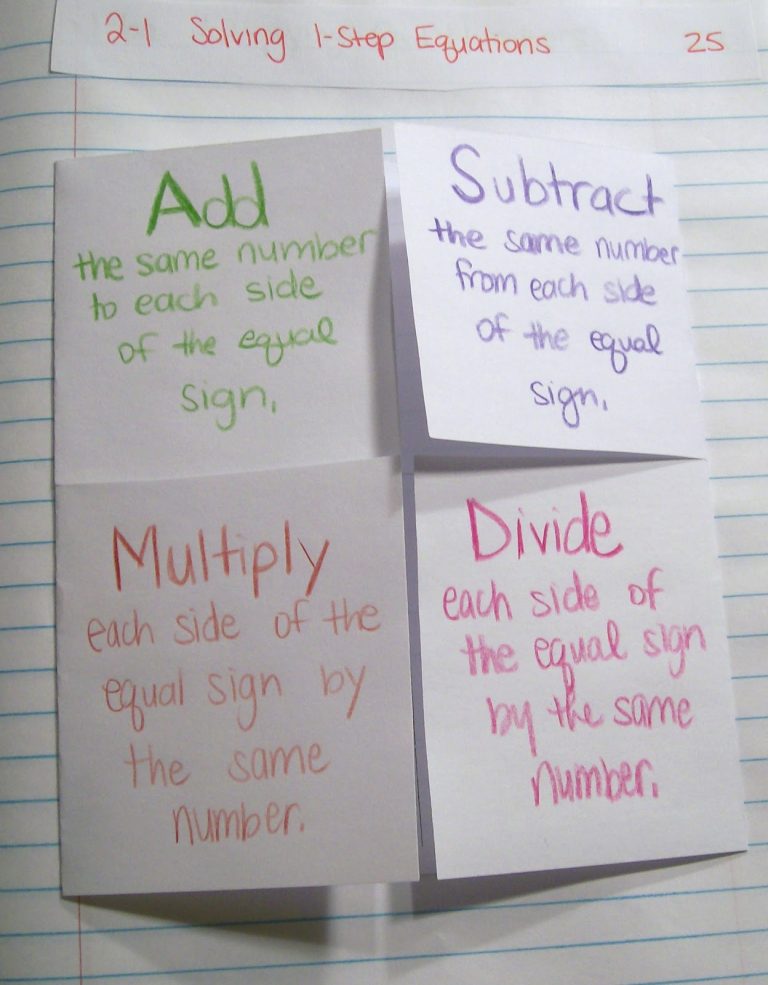 2-1 Solving 1-Step Equations 25
Add
the same number
to each side
of the equal
sign.
Subtract
the same number
from each side
of the equal
sign.
Multiply
each side of the
equal sign by
the same
number.
Divide
each side of
the equal sign
by the same
number.